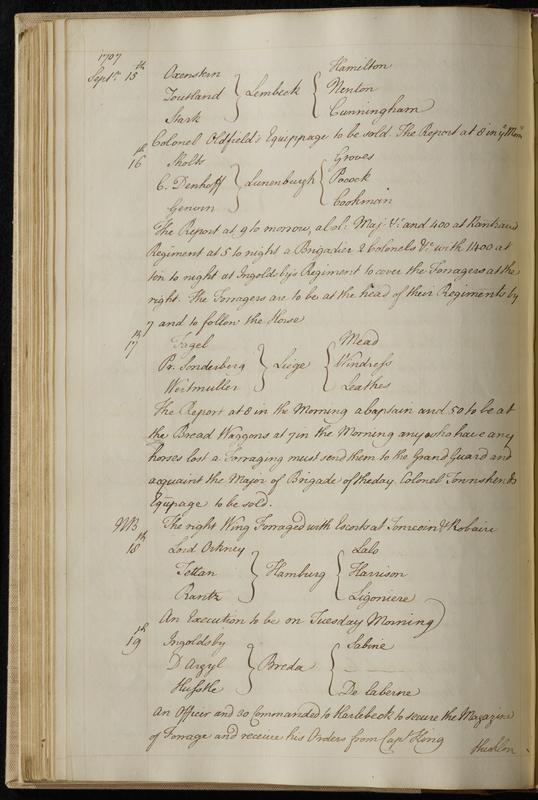 1707
Septr. 15th Oxenstern } Lembeck { Hamilton
Toutland Nenton
Stark Cunningham
Colonel Oldfield's Equippage to be sold. The Report at 8 in ye Morng
16th Sholts } Lunenburgh { Groves
C. Denhoff Pocock
Genvin Cookman
The Report at 9 to morrow, a Lol: Maj. &c. and 400 at
Regiment at 5 to night a Brigadier 2 Colonels &c. with 1400 at
ten to night at Ingoldsby's Regiment to cover the Forragers at the
right. The Forragers are to be at the head of their Regiments by
7 and to follow the Horse
17th Fagel } Liege { Mead
Pr. Sonderberg Windress
Wertmuller Leathes
The Report at 8 in the Morning a Captain and 50 to be at
the Bread Waggons at 7 in the Morning any who have any
horses lost a Forraging must send them to the Grand Guard and
acquaint the Major of Brigade of the day. Colonel Townshends
Equipage to be sold.
NB The right Wing Forraged with Escorts at & Robaire
18th Lord Orkney } Hamburg { Lalo
Tettan Harrison
Rantz Ligoniere
An Execution to be on Tuesday Morning
19th Ingoldsby } Breda { Sabine
D'Argyl ———
Husske De Laberne
An Officer and 30 Commanded to Harlebeck to secure the Magazine
of Forrage and receive his Orders from Capt King